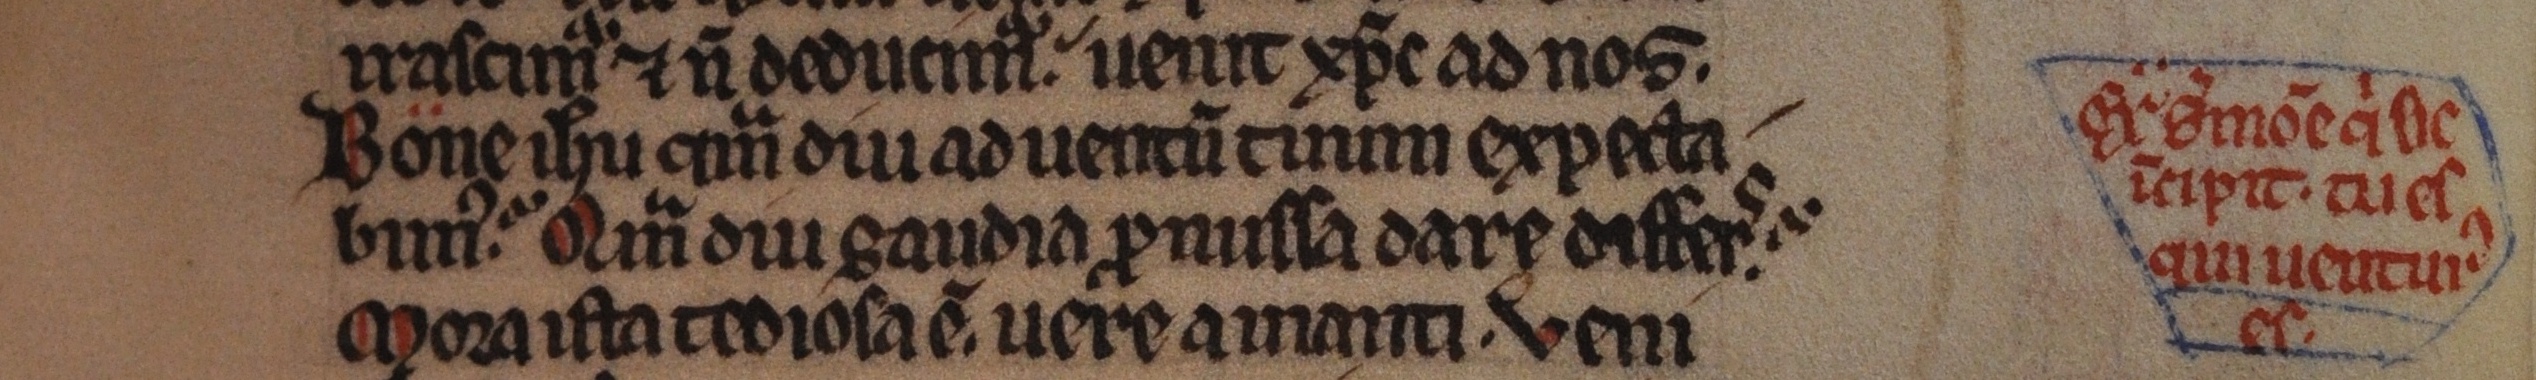 irascimͣr ⁊ n̄ deducimͣr. uenit xp̄c ad nos.
Bone ih̄u qͣm diu aduentū tuum expecta
bimꝰ. Qͣm diu gaudia ꝓmissa dare differs.
Mora ista tediosa ē. uere amanti. Veni
s̄mōe qͥ sic
īcipit. tu es
qui uenturꝰ
es.